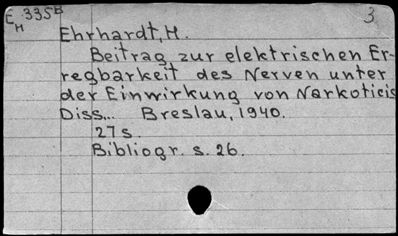 E 335B
H
3
Ehrhardt, H.
Beitrag zur elektrischen Er-
regbarkeit des Nerven unter
der Einwirkung von Narkoticis
Diss... Breslau, 1940.
27 s.
Bibliogr. s. 26.